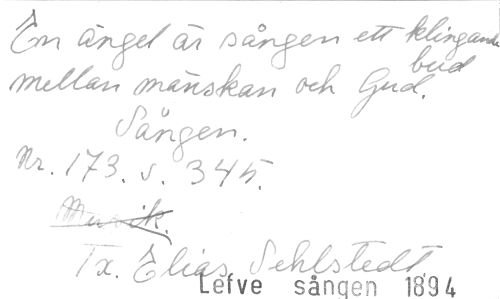 En ängel är sången ett klingande bud
mellan mänskan och Gud.
Sången.
Nr. 173. s. 345.
Musik.
Tx. Elias Sehlstedt
Lefve sången 1894